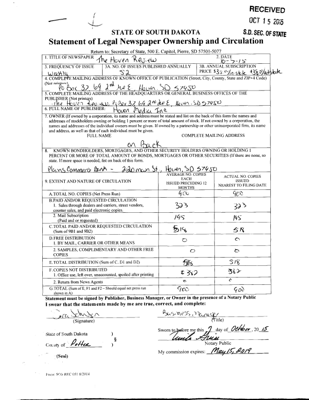 RECEIVED
OCT 15 2015
S.D. SEC. OF STATE
STATE OF SOUTH DAKOTA
Statement of Legal Newspaper Ownership and Circulation
Return to: Secretary of State, 500 E. Capitol, Pierre, SD 57501-5077
1. TITLE OF NEWSPAPER The Hoven Review
2. DATE
3. FREQUENCY OF ISSUE
3A. NO. OF ISSUES PUBLISHED ANNUALLY
3B. ANNUAL SUBSCRIPTION PRICE
Weekly 52
4. COMPLETE MAILING ADDRESS OF KNOWN OFFICE OF PUBLICATION (Street, City, County, State and ZIP+4 Code) (Not printer)
Hoven SD 57450
5. COMPLETE MAILING ADDRESS OF THE HEADQUARTERS OR GENERAL BUSINESS OFFICES OF THE PUBLISHER (Not printer)
6. FULL NAME OF PUBLISHER: Hoven Media Inc
7. OWNER (If owned by a corporation, its name and address must be stated and list on the back of this form the names and addresses of stockholders owning or holding 1 percent or more of total amount of stock. If not owned by a corporation, the names and addresses of the individual owners must be given. If owned by a partnership or other unincorporated firm, its name and address, as well as that of each individual must be given.
FULL NAME
COMPLETE MAILING ADDRESS
on Back
8. KNOWN BONDHOLDERS, MORTGAGEES, AND OTHER SECURITY HOLDERS OWNING OR HOLDING 1 PERCENT OR MORE OF TOTAL AMOUNT OF BONDS, MORTGAGES OR OTHER SECURITIES (If there are none, so state. If more space is needed, list on back of this form.
Plains Commerce Bank - Main St, Hoven SD 57450
9. EXTENT AND NATURE OF CIRCULATION
AVERAGE NO. COPIES EACH ISSUED PRECEDING 12 MONTHS
ACTUAL NO. COPIES ISSUED NEAREST TO FILING DATE
A. TOTAL NO. COPIES (Net Press Run) 900 900
B. PAID AND/OR REQUESTED CIRCULATION
1. Sales through dealers and carriers, street vendors, counter sales, and paid electronic copies. 323 323
2. Mail Subscriptions (Paid and or requested) 195 195
C. TOTAL PAID AND/OR REQUESTED CIRCULATION (Sum of 9B1 and 9B2) 518 518
D. FREE DISTRIBUTION
1. BY MAIL, CARRIER OR OTHER MEANS 0 0
2. SAMPLES, COMPLIMENTARY AND OTHER FREE COPIES 0 0
E. TOTAL DISTRIBUTION (Sum of C, D1 and D2) 518
F. COPIES NOT DISTRIBUTED
1. Office use, left over, unaccounted, spoiled after printing 382 382
2. Return from News Agents
G. TOTAL (Sum of E, F1 and F2 - Should equal net press run shown in A) 900 900
Statement must be signed by Publisher, Business Manager, or Owner in the presence of a Notary Public
I swear that the statements made by me are true, correct, and complete:
Business Manager
(Signature)
(Title)
State of South Dakota
County of Potter
§
(Seal)
Sworn to before me this 7 day of October, 2015
Notary Public
My commission expires: